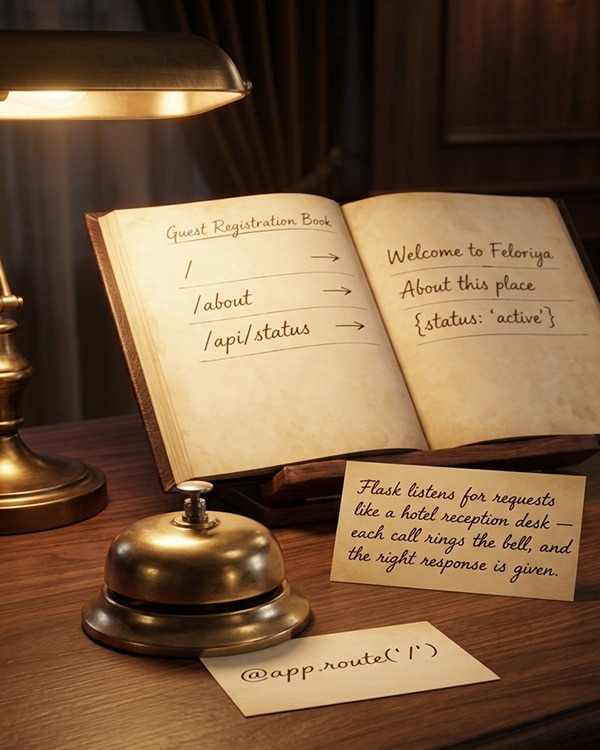 Guest Registration Book
/ → Welcome to Feloriya
/about → About this place
/api/status → {status: 'active'}
Flask listens for requests
like a hotel reception desk —
each call rings the bell, and
the right response is given.
@app.route('/')